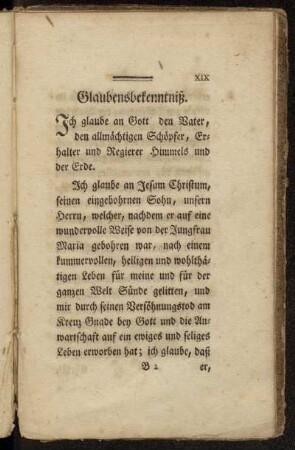 XIX
Glaubensbekenntniß.
Ich glaube an Gott den Vater,
den allmächtigen Schöpfer, Er-
halter und Regierer Himmels und
der Erde.
Ich glaube an Jesum Christum,
seinen eingebohrnen Sohn, unsern
Herrn, welcher, nachdem er auf eine
wundervolle Weise von der Jungfrau
Maria gebohren war, nach einem
kummervollen, heiligen und wohlthä-
tigen Leben für meine und für der
ganzen Welt Sünde gelitten, und
mir durch seinen Versöhnungstod am
Kreuz Gnade bey Gott und die An-
wartschaft auf ein ewiges und seliges
Leben erworben hat; ich glaube, daß
B 2 er,